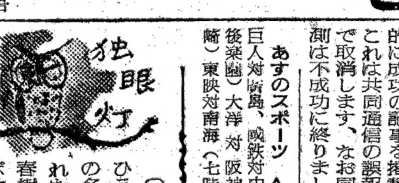 的に成功の記事を掲載
これは共同通信の誤報
で取消します、なお同
測は不成功に終りま
あすのスポーツ
巨人対広島、国鉄対中
後楽園）大洋対阪神
崎）東映対南海（七時
独眼灯
ひ
の名
れ
春樹